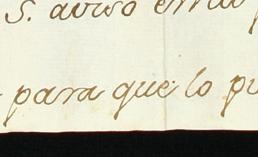 S. aviso en la
para que lo pu